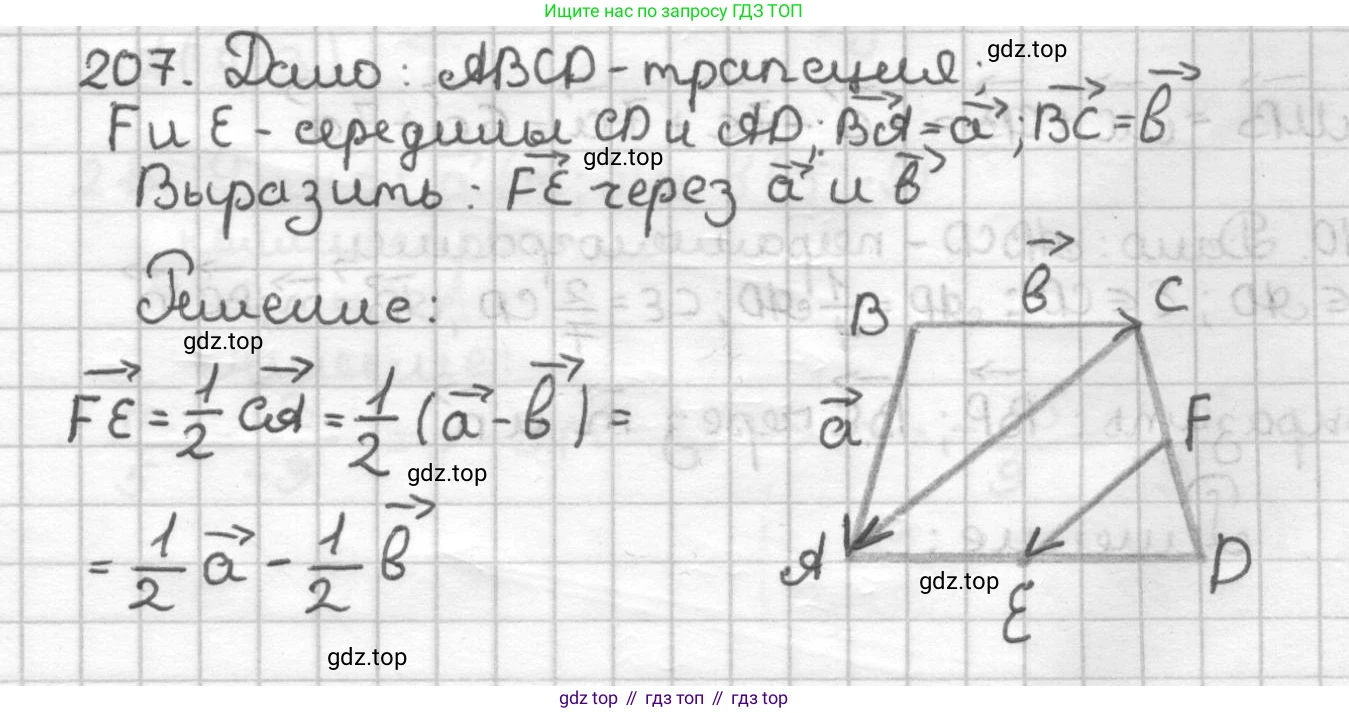 Ищите нас по запросу ГДЗ ТОП
207. Дано: ABCD - трапеция; gdz.top
F и E - середины CD и AD; BA→ = a→; BC→ = b→
gdz.top
Выразить: FE→ через a→ и b→
Решение:
gdz.top
FE→ = 1/2 CA→ = 1/2 (a→ - b→) =
gdz.top
= 1/2 a→ - 1/2 b→
gdz.top
b→
B C
a→ F
A D
gdz.top
E
gdz top // гдз топ // гдз top